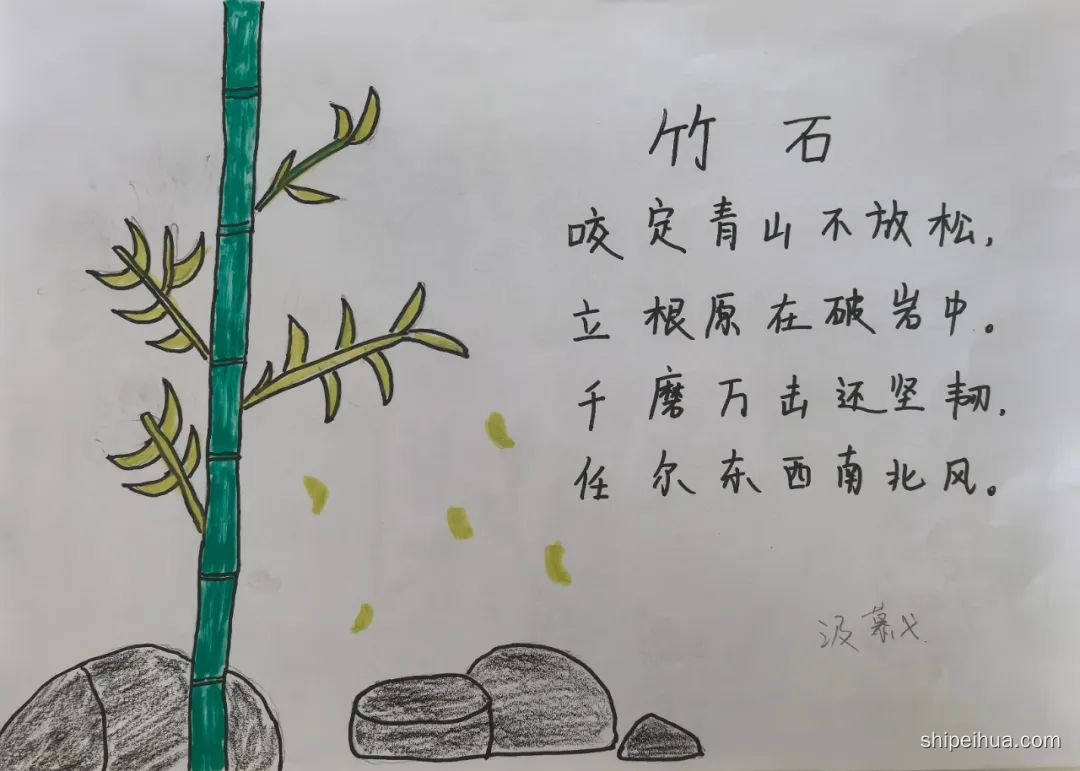 竹石
咬定青山不放松,
立根原在破岩中。
千磨万击还坚韧,
任尔东西南北风。
shipeihua.com